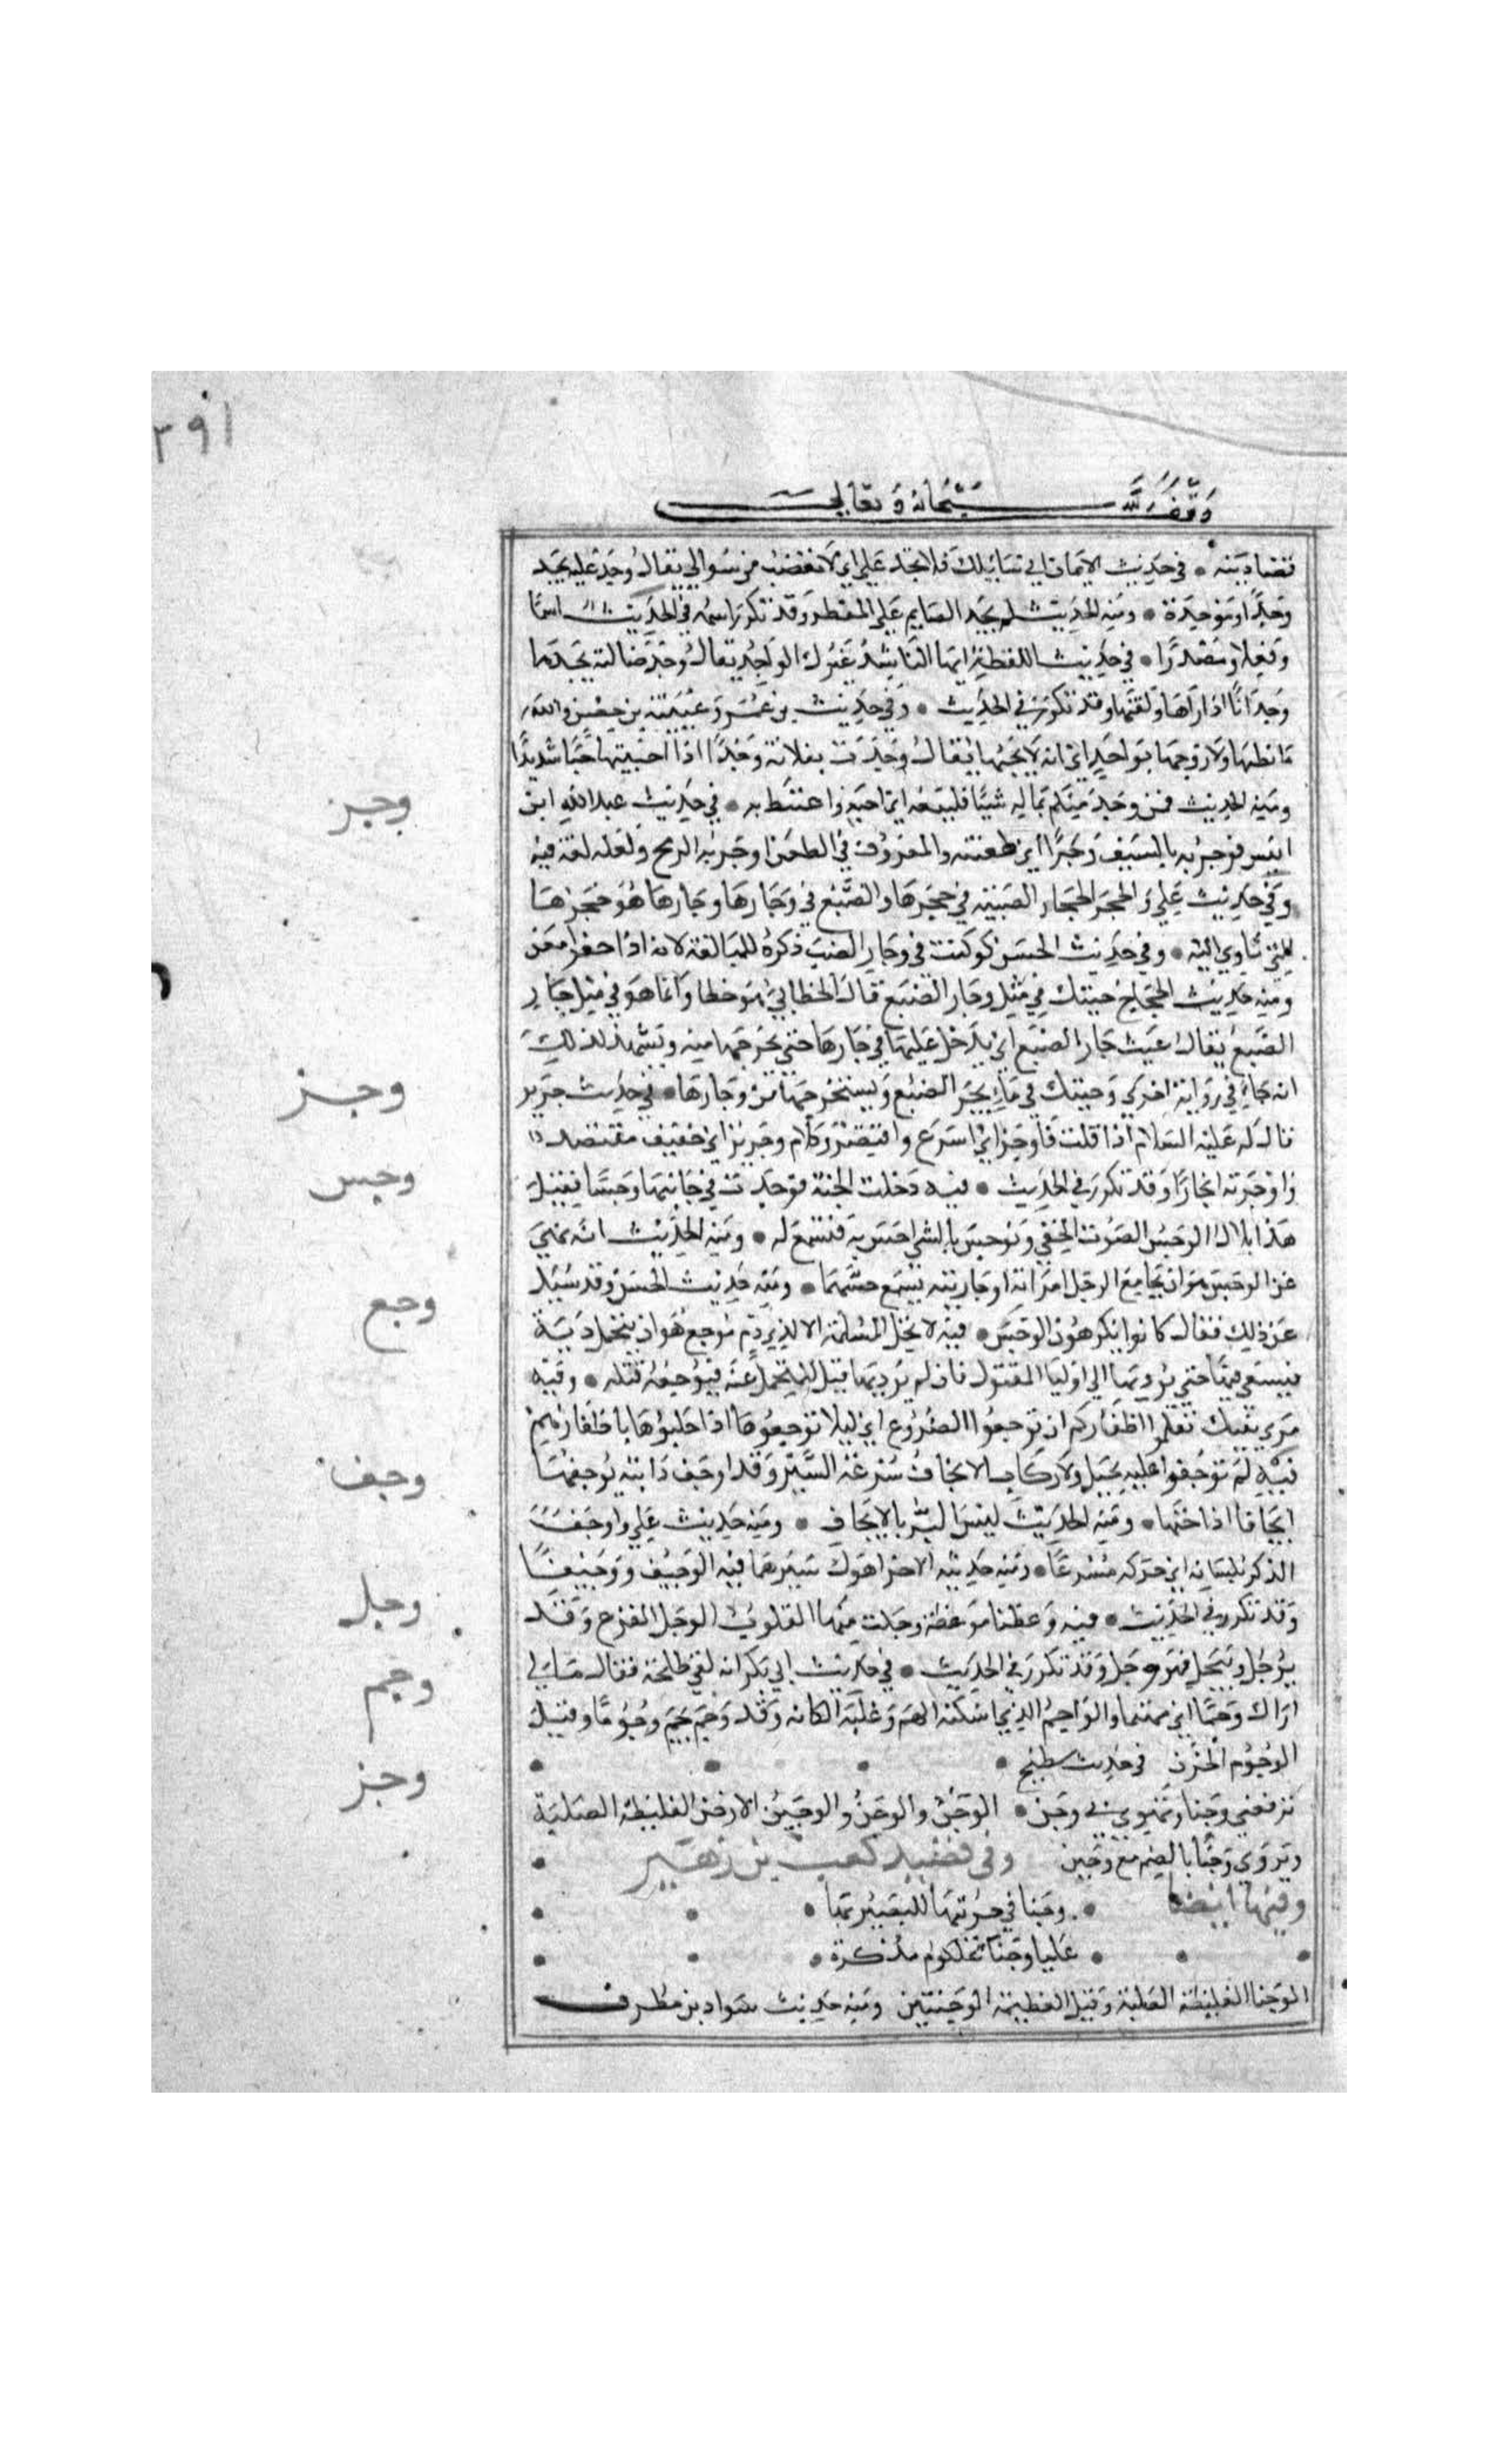 ٣٩١
وقف لله سبحانه وتعالى
قضادينه • في حديث الايمان اني سايلك فلا تجد علي اي لا تغضب من سوالي يقال وجد عليه يجد
وجدا وموجدة • ومنه الحديث لم يجد الصايم علي المفطر وقد تكرر اسمه في الحديث اسما
وفعلا ومصدرا • في حديث اللقطة ايها الناشد غيرك الواجد يقال وجد ضالته يجدها
وجدانا اذا راها ولقيها وقد تكرر في الحديث • وفي حديث بن عمر وعيينة بن حصن والله
ما بطنها ولا زوجها بواحد اي انه لا يحبها يقال وجدت بفلانة وجدا اذا احببتها حبا شديدا
ومنه الحديث فمن وجد منكم بماله شيا فليبعه اي احبه واغتبط به • في حديث عبد الله ابن
وجر
انيس فوجرته بالسيف وجرا اي طعنته والمعروف في الطعن اوجرته الرمح ولعله لغة فيه
وفي حديث علي وانحجر انحجار الضبة في جحرها والضبع في وجارها وجارها هو جحرها
التي تاوي اليه • وفي حديث الحسن لو كنت في وجار الضب ذكره للمبالغة لانه اذا حفر امعن
ومنه حديث الحجاج جيتك في مثل وجار الضبع قال الخطابي هو خطا وانما هو في مثل جار
الضبع يقال غيث جار الضبع اي يدخل عليها في وجارها حتي يخرجها منه ويشهد لذلك
انه جاء في رواية اخري وجيتك في ماء يجر الضبع ويستخرجها من وجارها • في حديث جرير
وجز
قال له عليه السلام اذا قلت فاوجز اي اسرع واقتصر وكلام وجيز اي خفيف مقتصد
واوجزته ايجازا وقد تكرر في الحديث • فيه دخلت الجنة فوجدت في جانبها وجسا فقيل
وجس
هذا بلال الوجس الصوت الخفي وتوجس بالشي احس به فتسمع له • ومنه الحديث انه نهي
عن الوجس هو ان يجامع الرجل امراته او جاريته يسمع حسهما • ومنه حديث الحسن وقد سيل
عن ذلك فقال كانوا يكرهون الوجس • فيه لا تحل المسلة الا لذي دم موجع هو ان يتحمل دية
وجع
فيسعي فيها حتي يوديها الي اوليا المقتول فان لم يوديها قتل المتحمل عنه فيوجعه قتله • وفيه
مري بنيك تقلموا اظفاركم ان توجعوا الضروع اي ليلا توجعوها اذا حلبوها باظفارهم
فيه لم توجفوا عليه بخيل ولا ركاب الايجاف سرعة السير وقد اوجف دابته يوجفها
وجف
ايجافا اذا حثها • ومنه الحديث ليس البر بالايجاف • ومنه حديث علي واوجف
الذكر بلسانه اي حركه مسرعا • ومنه حديثه الاخر اهون سيرها فيه الوجيف ووجيفا
وقد تكرر في الحديث • فيه وعظنا موعظة وجلت منها القلوب الوجل الفزع وقد
وجل
يوجل وييجل فهو وجل وقد تكرر في الحديث • في حديث ابي بكر انه لقي طلحة فقال مالي
وجم
اراك وجما اي مهتما والواجم الذي اسكته الهم وغلبه الكابه وقد وجم يجم وجوما وقيل
الوجوم الحزن في حديث سطيح •
وجن
ترفعني وجنا وتهوي بي وجن • الوجن والوجن والوجين الارض الغليظة الصلبة
ويروي وجنا بالضم مع وجين وفي قصيد كعب بن زهير
وفيها ايضا • وجنا في حرتيها للبصير بها •
• غلبا وجنا علكوم مذكرة •
الوجنا الغليظة الصلبة وقيل العظيمة الوجنتين ومنه حديث سواد بن مطرف